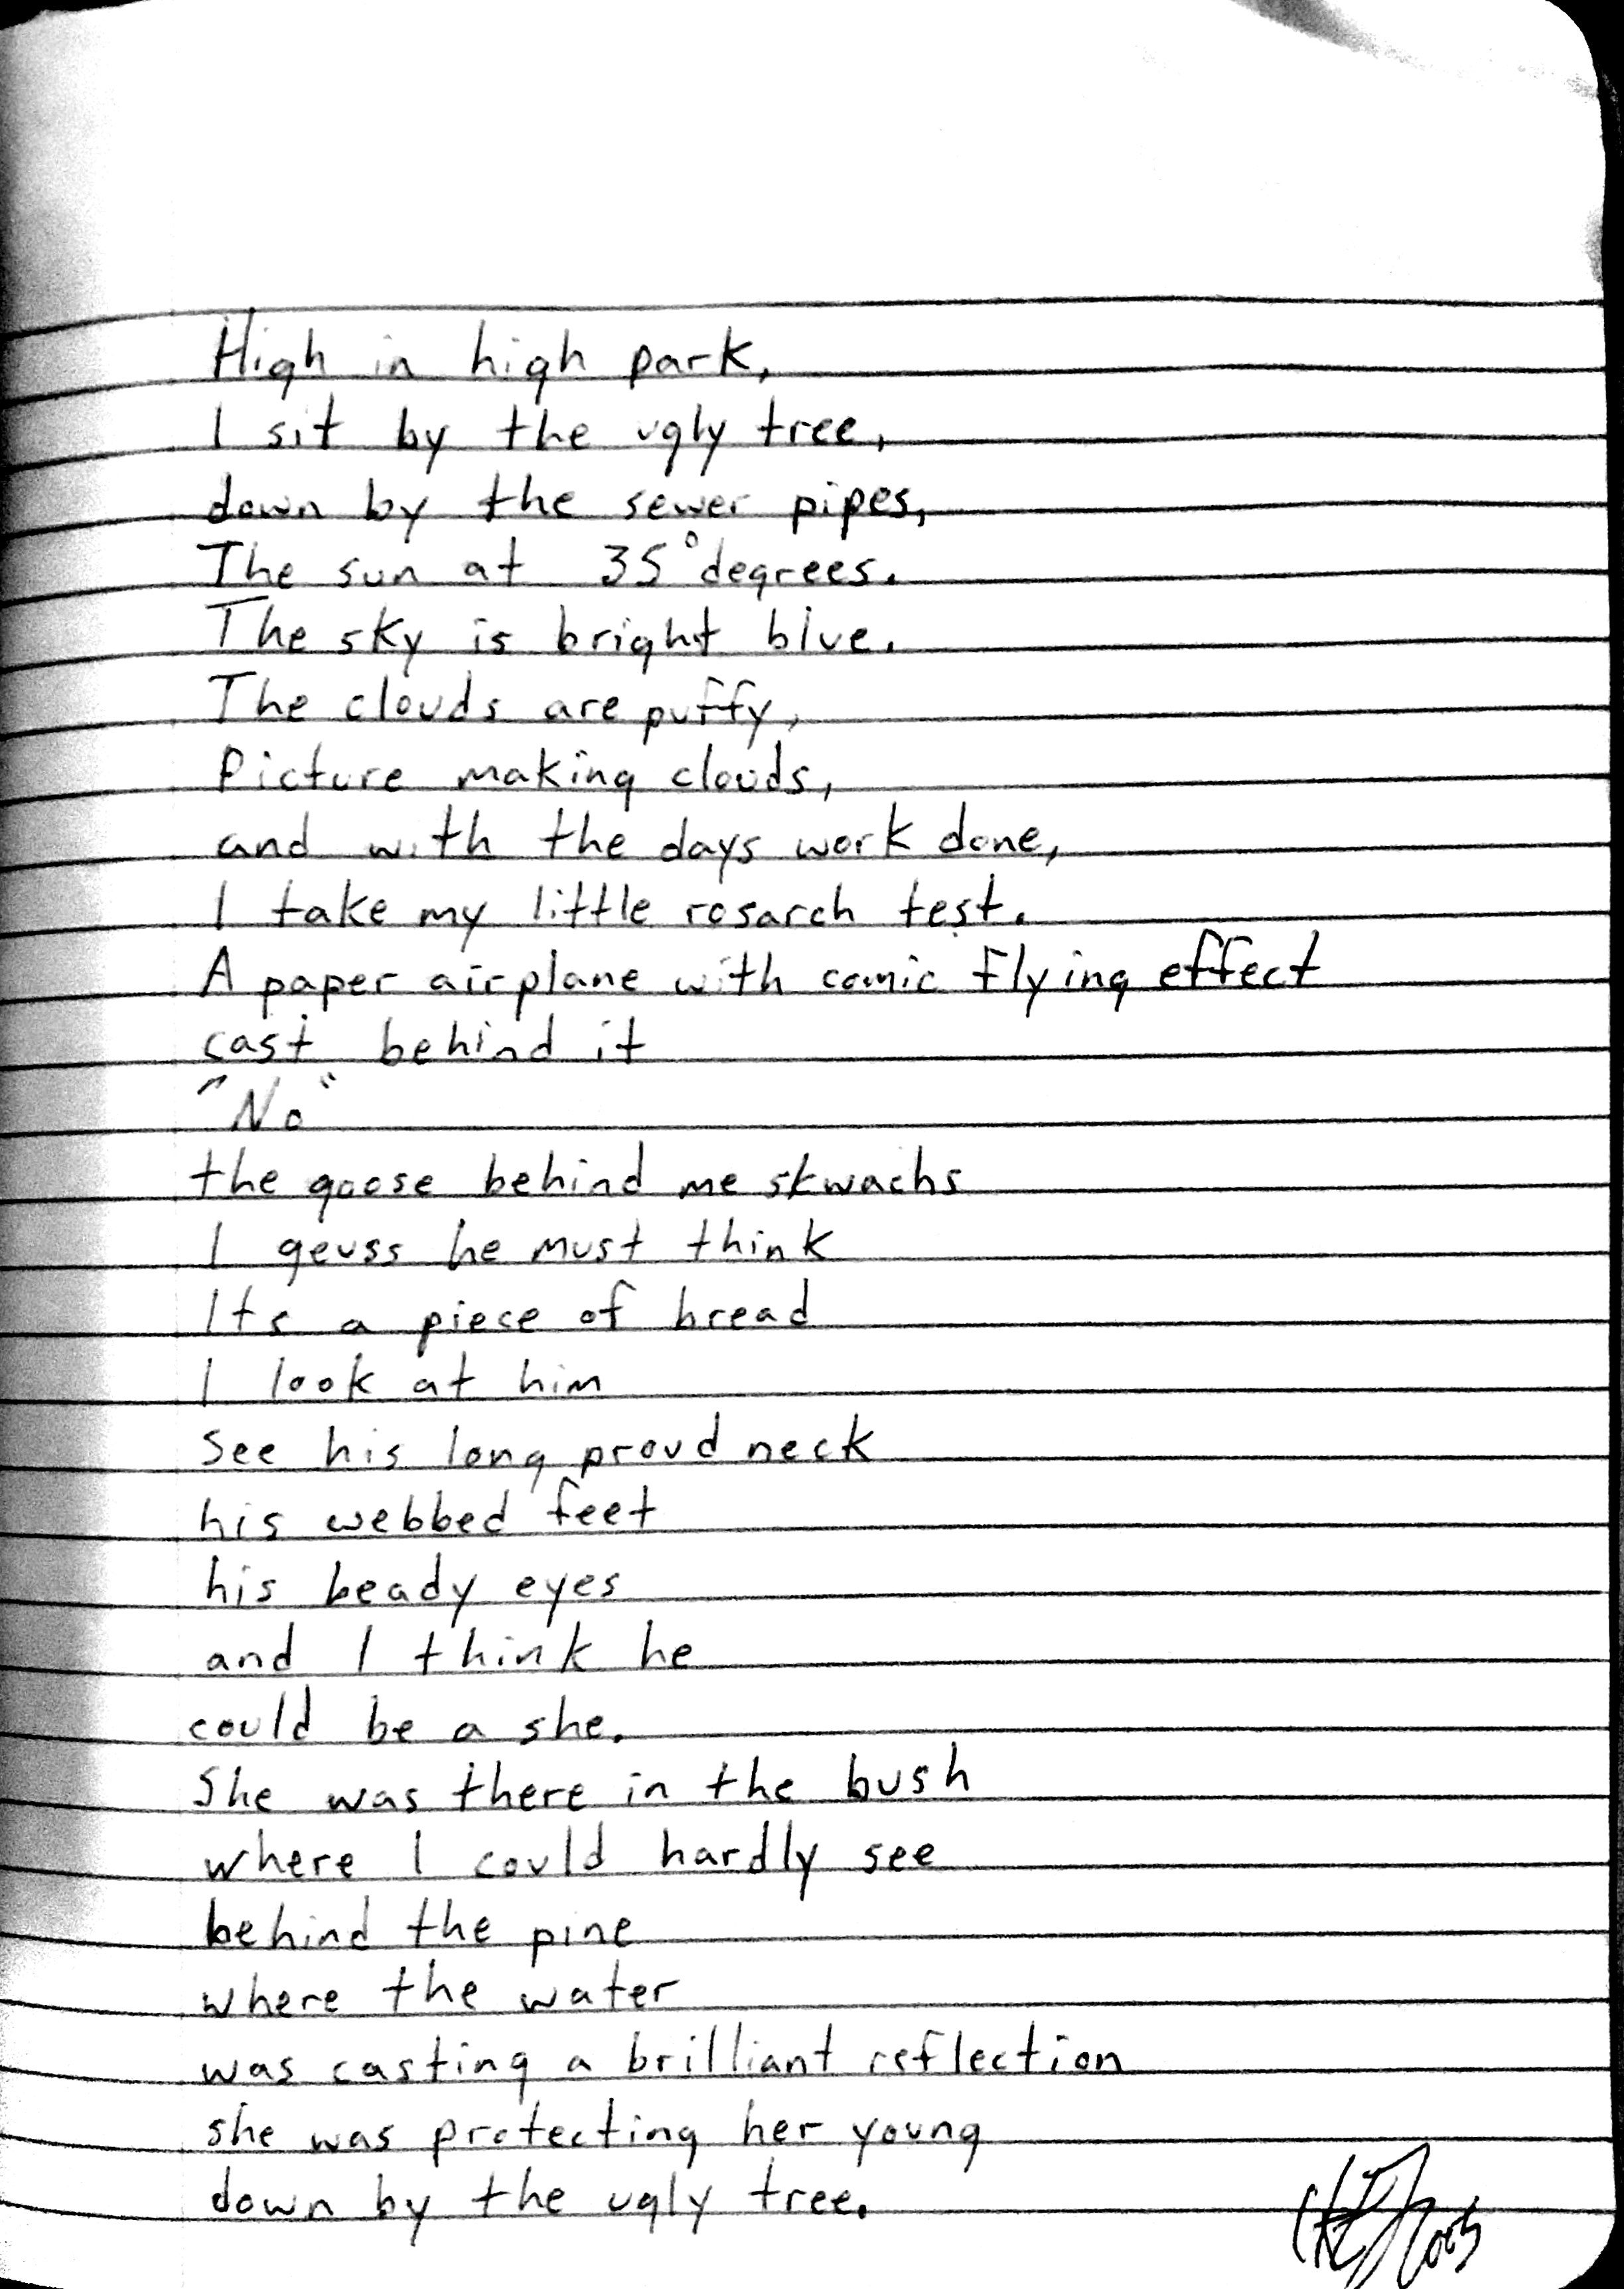 High in high park,
I sit by the ugly tree,
down by the sewer pipes,
The sun at 35° degrees.
The sky is bright blue.
The clouds are puffy,
Picture making clouds,
and with the days work done,
I take my little rosarch test.
A paper airplane with comic flying effect
cast behind it
"No"
the goose behind me skwachs
I geuss he must think
Its a piece of bread
I look at him
see his long proud neck
his webbed feet
his beady eyes
and I think he
could be a she.
She was there in the bush
where I could hardly see
behind the pine
where the water
was casting a brilliant reflection
she was protecting her young
down by the ugly tree.